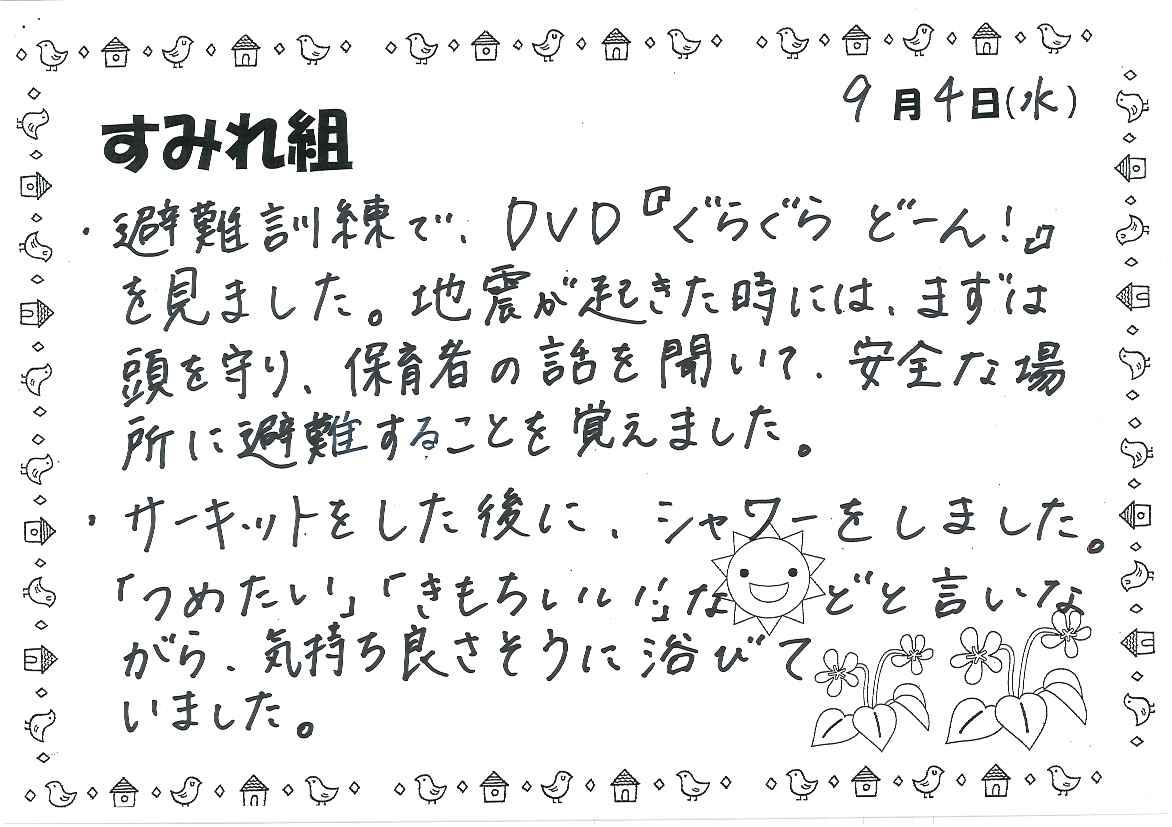 9月4日(水)
すみれ組
・避難訓練で、DVD『ぐらぐら どーん！』
を見ました。地震が起きた時には、まずは
頭を守り、保育者の話を聞いて、安全な場
所に避難することを覚えました。
・サーキットをした後に、シャワーをしました。
「つめたい」「きもちいい！」などと言いな
がら、気持ち良さそうに浴びて
いました。